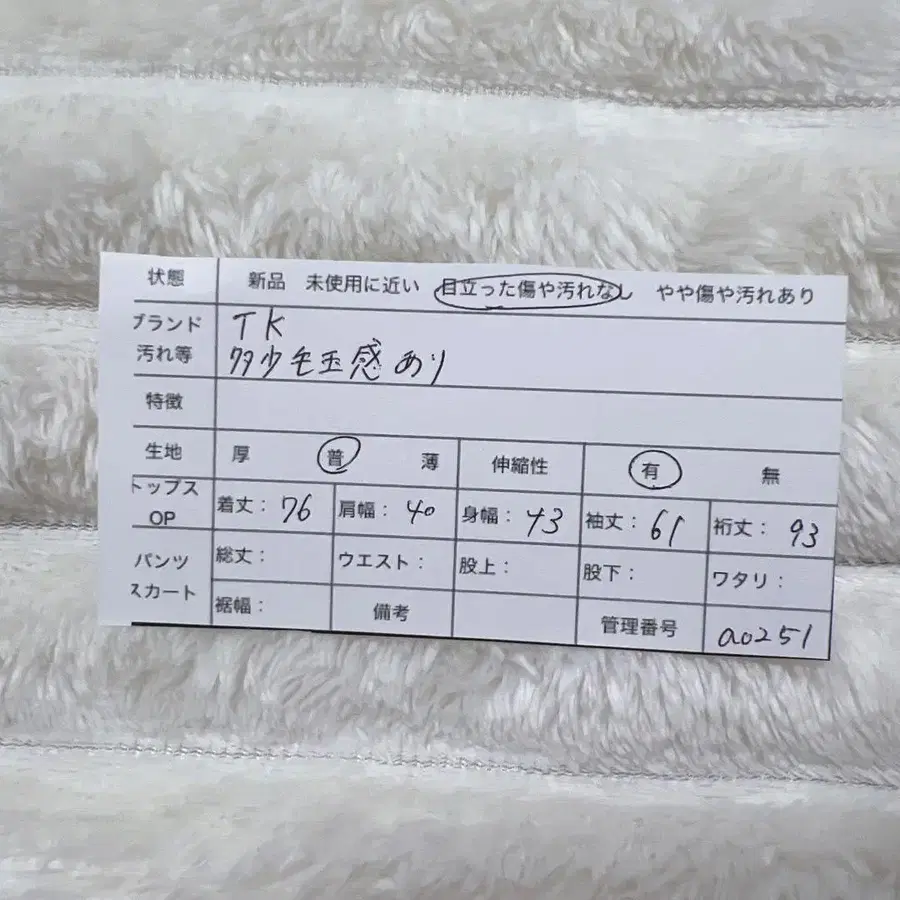 状態 新品 未使用に近い 目立った傷や汚れなし やや傷や汚れあり
ブランド TK
汚れ等 多少毛玉感あり
特徴
生地 厚 普 薄 伸縮性 有 無
トップス OP 着丈: 76 肩幅: 40 身幅: 43 袖丈: 61 裄丈: 93
パンツ 総丈: ウエスト: 股上: 股下: ワタリ:
スカート 裾幅: 備考 管理番号 a0251